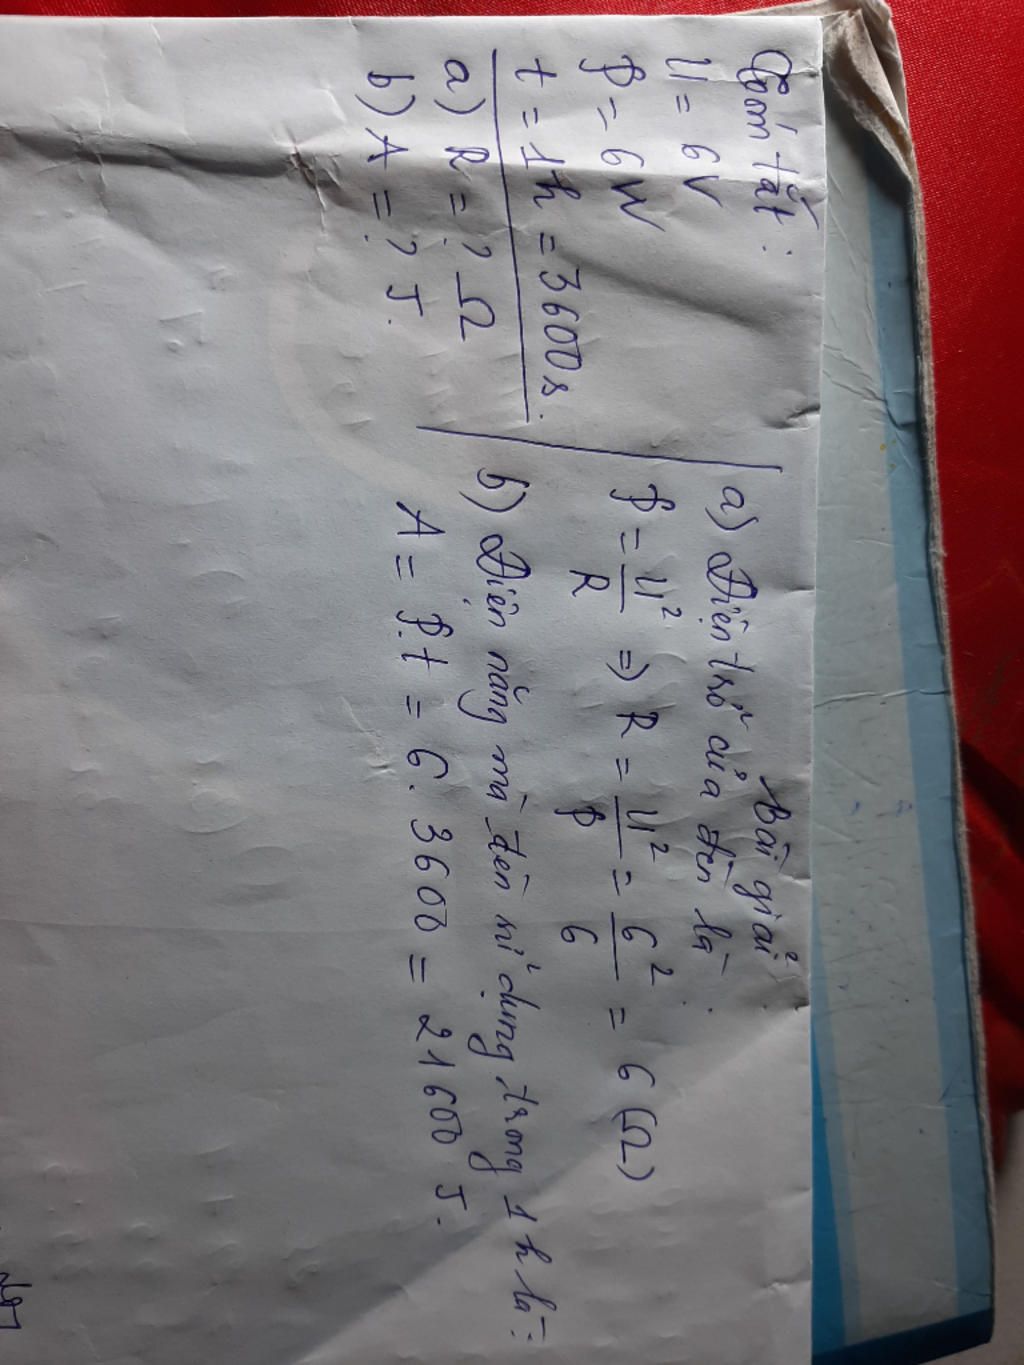 Tóm tắt:
U = 6V
P = 6W
t = 1h = 3600s.
a) R = ? Ω
b) A = ? J.
Bài giải:
a) Điện trở của đèn là:
P = U²/R => R = U²/P = 6²/6 = 6 (Ω)
b) Điện năng mà đèn sử dụng trong 1h là:
A = P.t = 6.3600 = 21600 J.